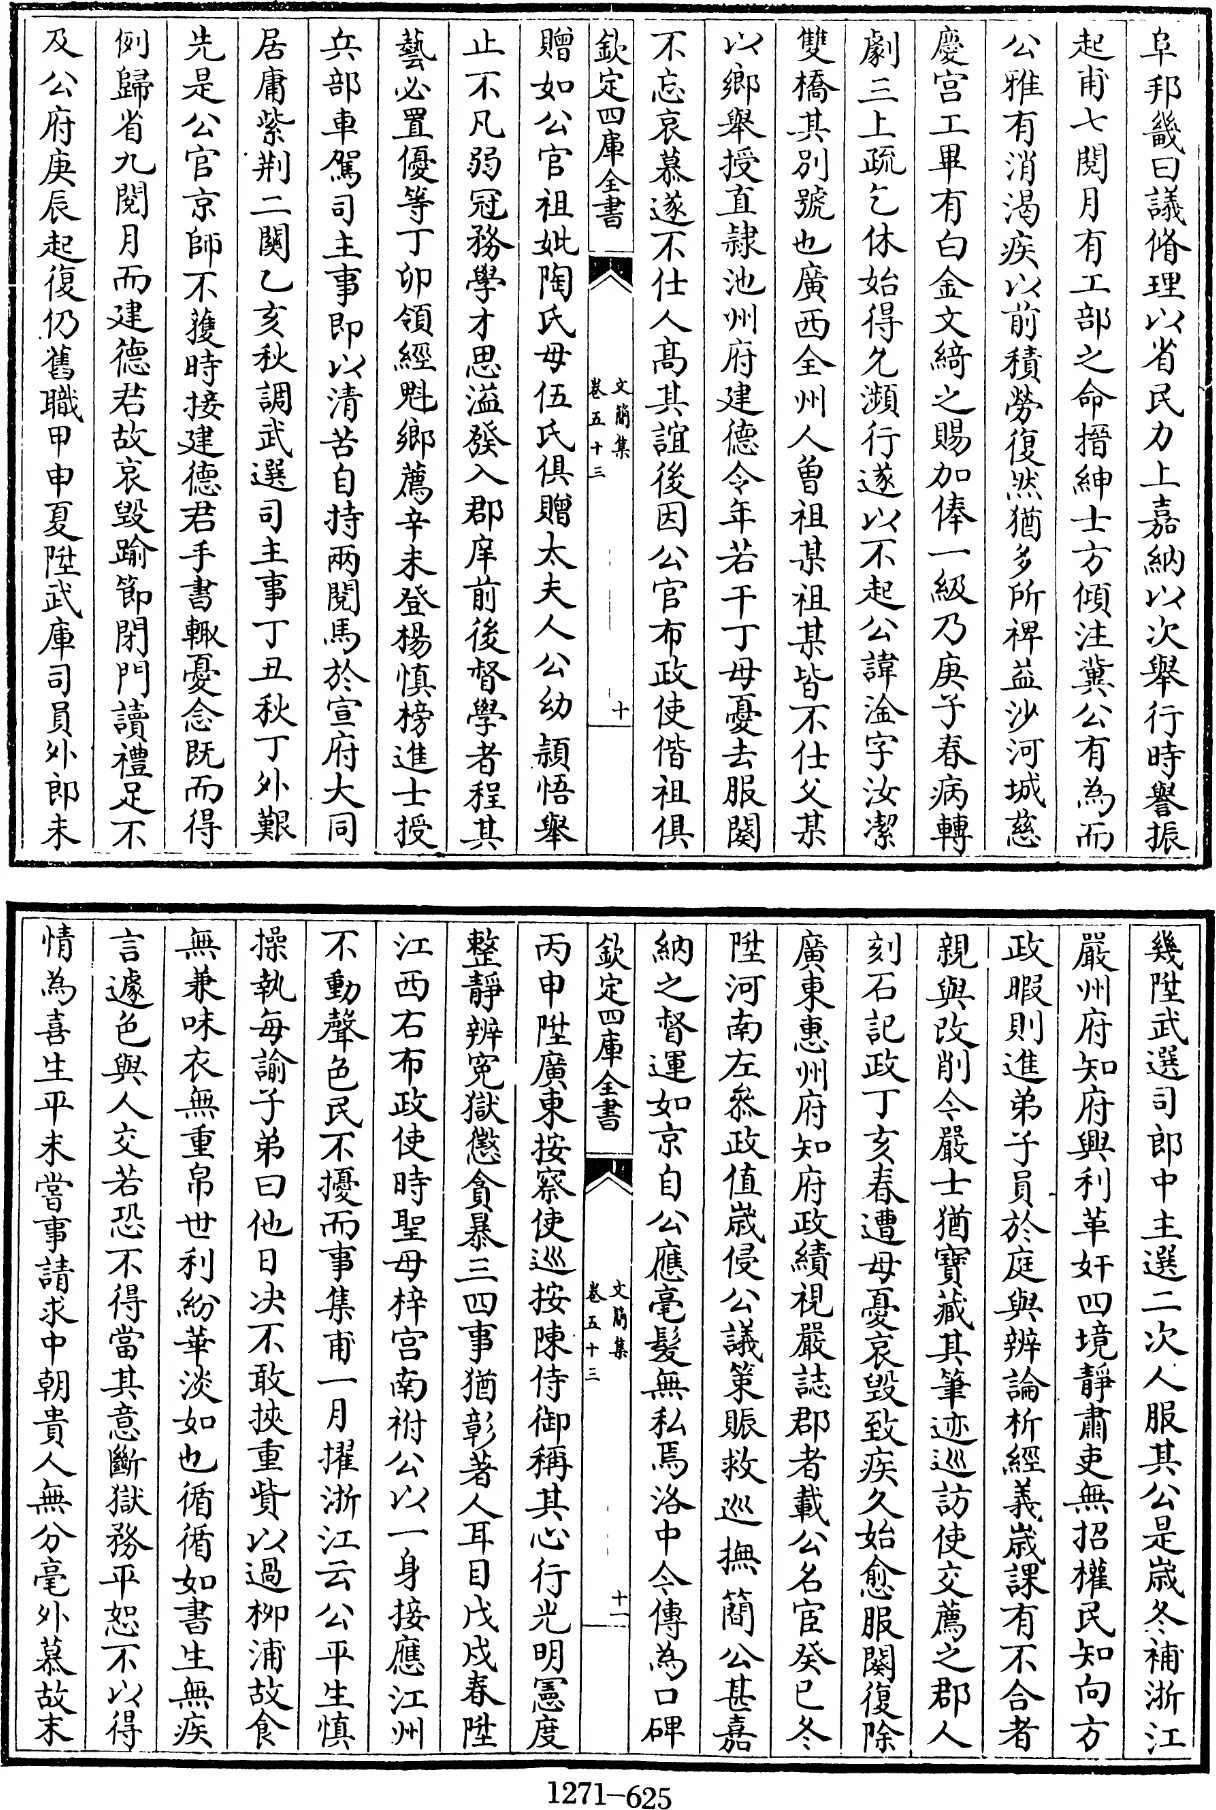 阜邦畿曰議脩理以省民力上嘉納以次舉行時譽振
起甫七閱月有工部之命搢紳士方傾注冀公有為而
公雅有消渴疾以前積勞復然猶多所裨益沙河城慈
慶宫工畢有白金文綺之賜加俸一級乃庚子春病轉
劇三上疏乞休始得允瀕行遂以不起公諱淦字汝潔
雙橋其別號也廣西全州人曾祖某祖某皆不仕父某
以鄉舉授直隷池州府建德令年若干丁母憂去服闋
不忘哀慕遂不仕人髙其誼後因公官布政使偕祖俱
欽定四庫全書
文簡集
卷五十三
十
贈如公官祖妣陶氏母伍氏俱贈太夫人公幼頴悟舉
止不凡弱冠務學才思溢發入郡庠前後督學者程其
藝必置優等丁卯領經魁鄉薦辛未登楊慎榜進士授
兵部車駕司主事即以清苦自持兩閱馬於宣府大同
居庸紫荆二闗乙亥秋調武選司主事丁丑秋丁外艱
先是公官京師不獲時接建德君手書輙憂念既而得
例歸省九閱月而建德君故哀毀踰節閉門讀禮足不
及公府庚辰起復仍舊職甲申夏陞武庫司員外郎未
幾陞武選司郎中主選二次人服其公是歳冬補浙江
嚴州府知府興利革奸四境靜肅吏無招權民知向方
政暇則進弟子員於庭與辨論析經義歳課有不合者
親與改削今嚴士猶寶藏其筆迹巡訪使交薦之郡人
刻石記政丁亥春遭母憂哀毀致疾久始愈服闋復除
廣東惠州府知府政績視嚴誌郡者載公名宦癸巳冬
陞河南左叅政值歳侵公議策賑救巡撫簡公甚嘉
納之督運如京自公應毫髮無私焉洛中今傳為口碑
欽定四庫全書
文簡集
卷五十三
十一
丙申陞廣東按察使巡按陳侍御稱其心行光明憲度
整靜辨寃獄懲貪暴三四事猶彰著人耳目戊戌春陞
江西右布政使時聖母梓宫南祔公以一身接應江州
不動聲色民不擾而事集甫一月擢浙江云公平生慎
操執每諭子弟曰他日决不敢挾重貲以過柳浦故食
無兼味衣無重帛世利紛華淡如也循循如書生無疾
言遽色與人交若恐不得當其意斷獄務平恕不以得
情為喜生平未嘗事請求中朝貴人無分毫外慕故末
1271-625